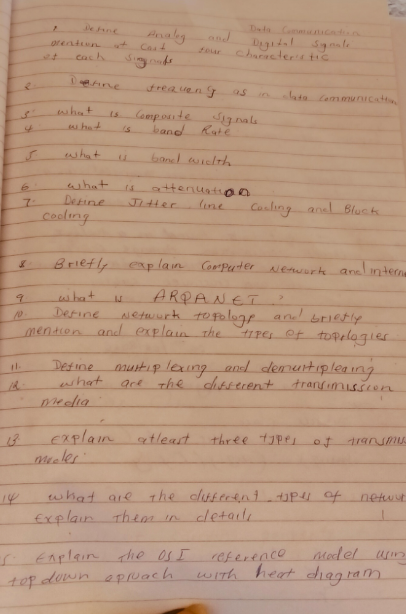 Data Communication
1 Define Analog and Digital Signals
mention at Cast four characteristic
of each Signals
2 Define frequency as in data communication
3 what is Composite Signals
4 what is band Rate
5 what is band width
6 what is attenuation
7. Define Jitter, line Cooling and Block
cooling
8 Briefly explain Computer Network and intern
9 what is ARPANET?
10 Define Network topology and briefly
mention and explain the types of topologies
11. Define multiplexing and demultiplexing
12. what are the different transmission
media
13 explain atleast three types of transmiss
modes
14 what are the different types of networ
explain them in details
5. explain the OSI reference model using
top down aproach with heat diagram